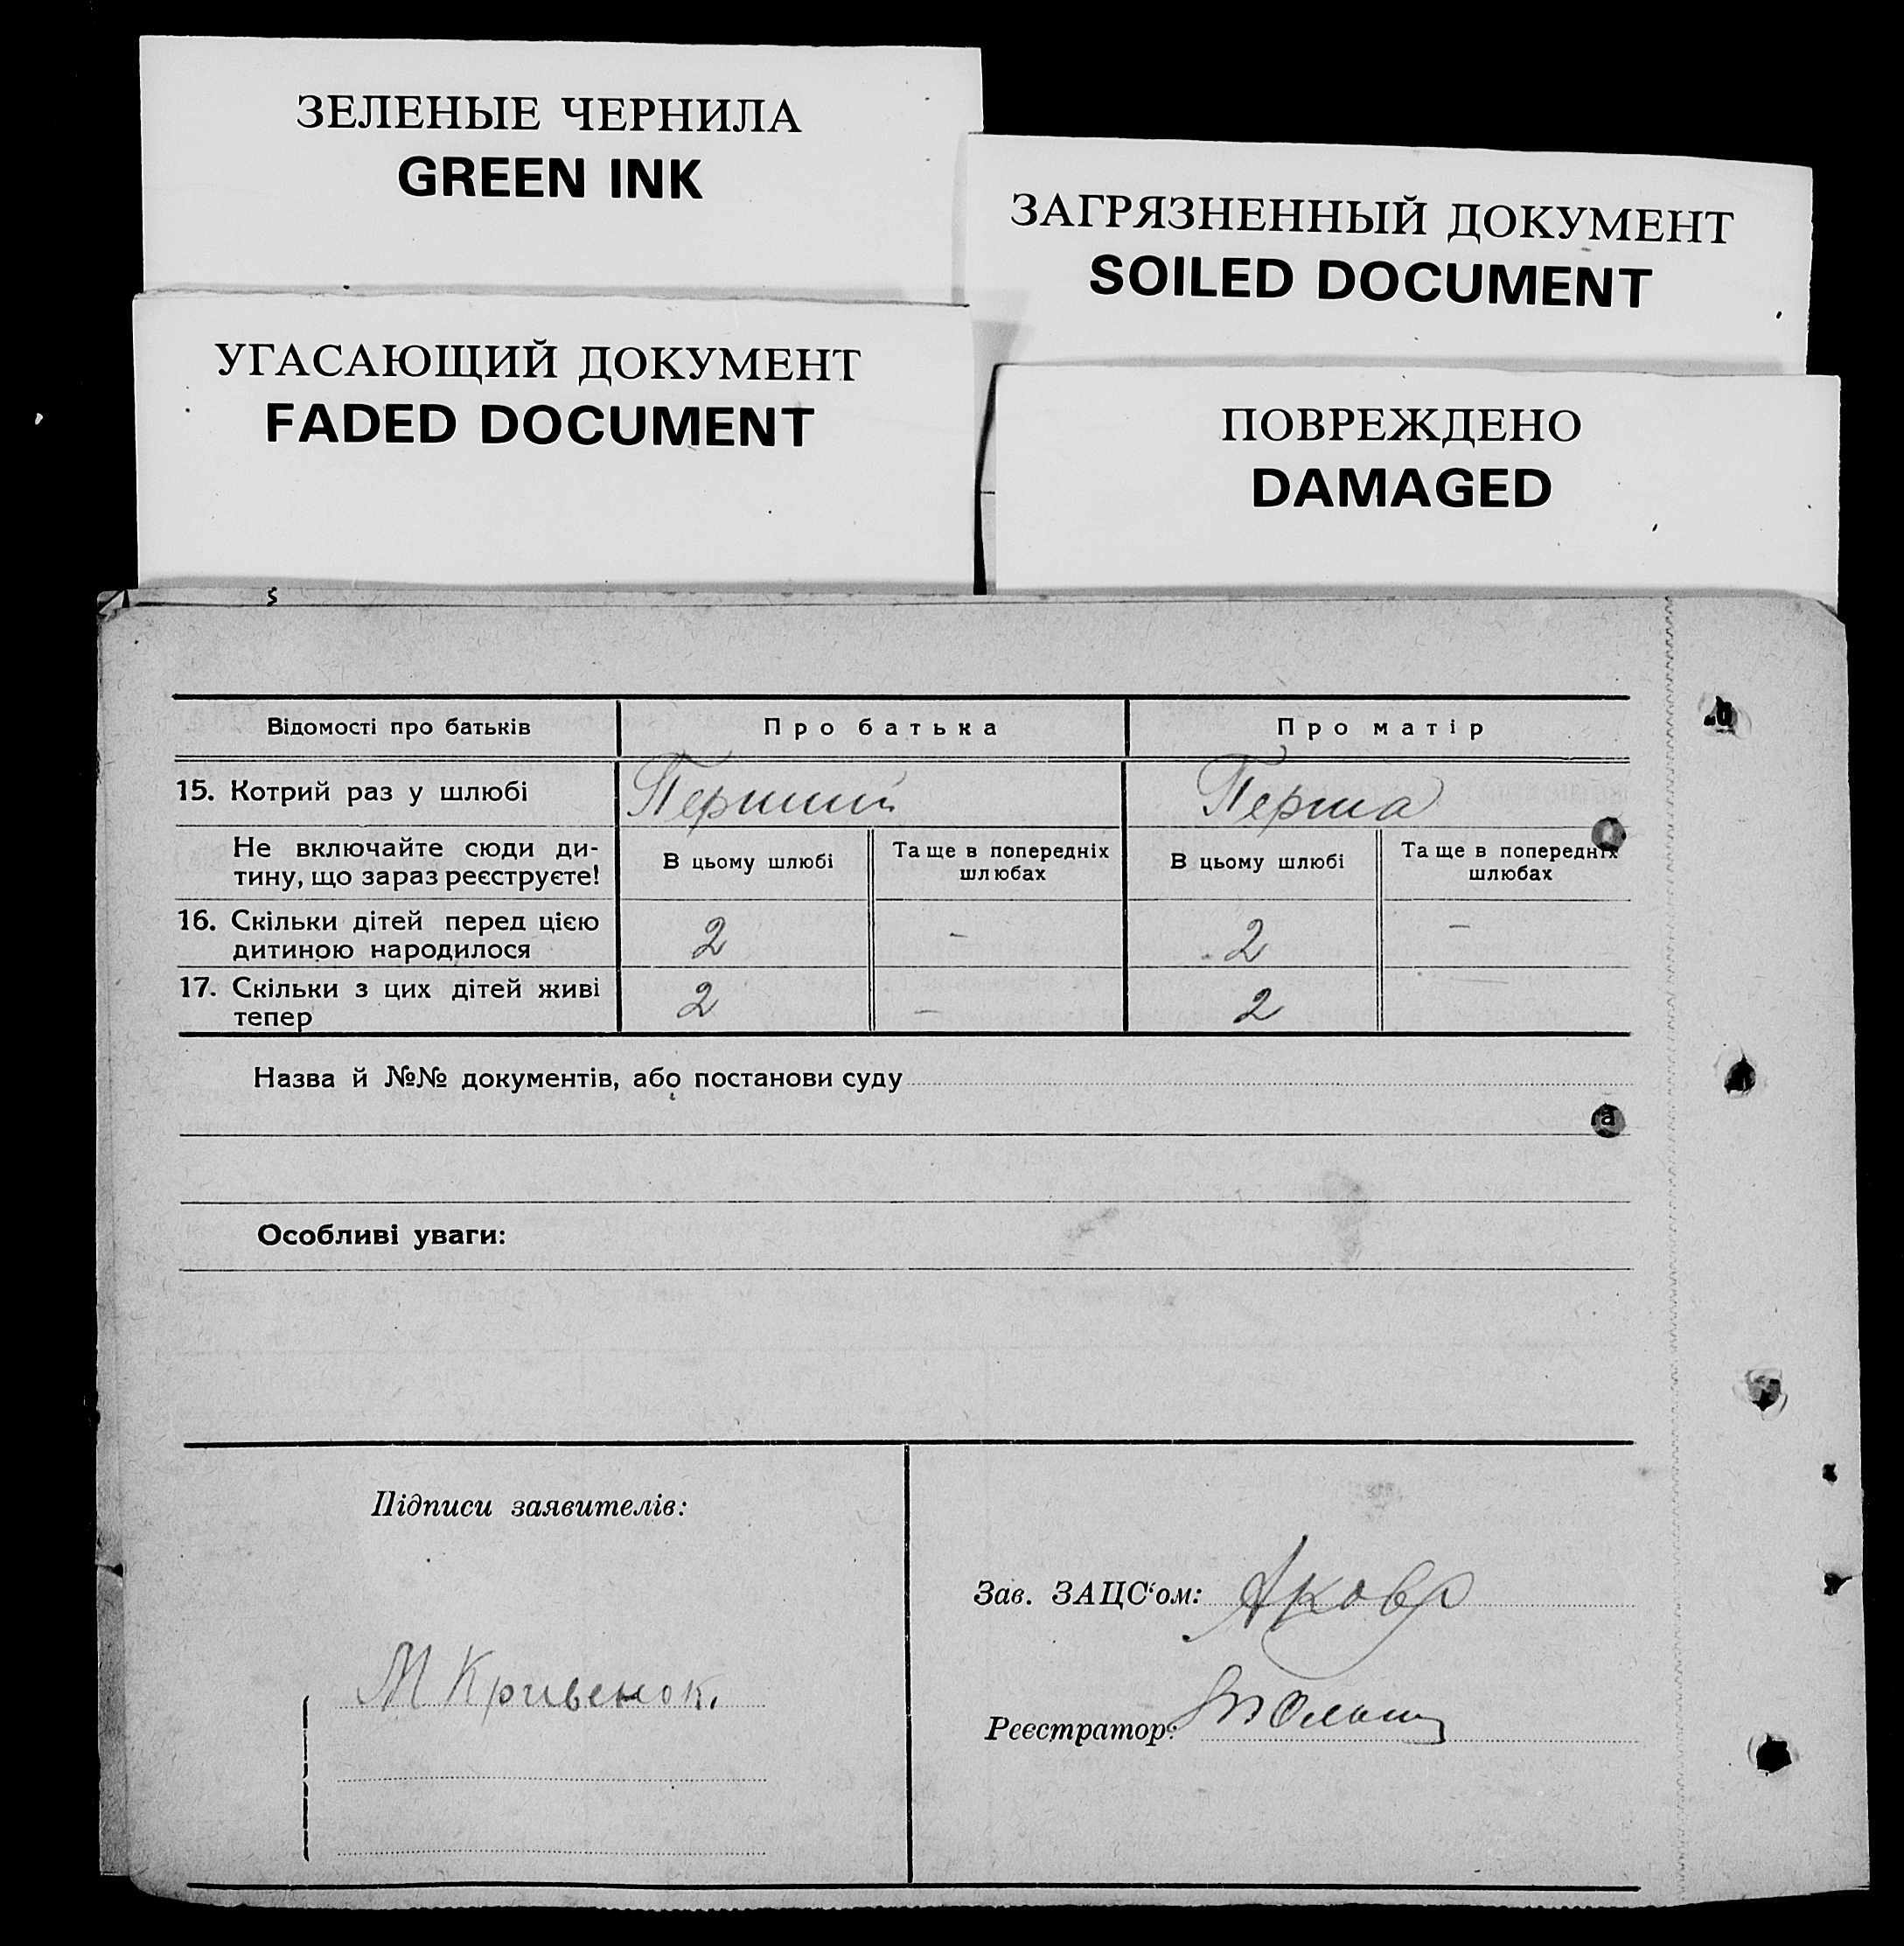 ЗЕЛЕНЫЕ ЧЕРНИЛА
GREEN INK
ЗАГРЯЗНЕННЫЙ ДОКУМЕНТ
SOILED DOCUMENT
УГАСАЮЩИЙ ДОКУМЕНТ
FADED DOCUMENT
ПОВРЕЖДЕНО
DAMAGED
Відомості про батьків Про батька Про матір
15. Котрий раз у шлюбі Перший Перша
Не включайте сюди ди-
тину, що зараз реєструєте!
В цьому шлюбі
Та ще в попередніх
шлюбах
В цьому шлюбі
Та ще в попередніх
шлюбах
16. Скільки дітей перед цією
дитиною народилося 2 – 2 –
17. Скільки з цих дітей живі
тепер 2 – 2 –
Назва й №№ документів, або постанови суду
Особливі уваги:
Підписи заявителів:
М Кривенок.
Зав. ЗАЦС'ом:
Реєстратор: